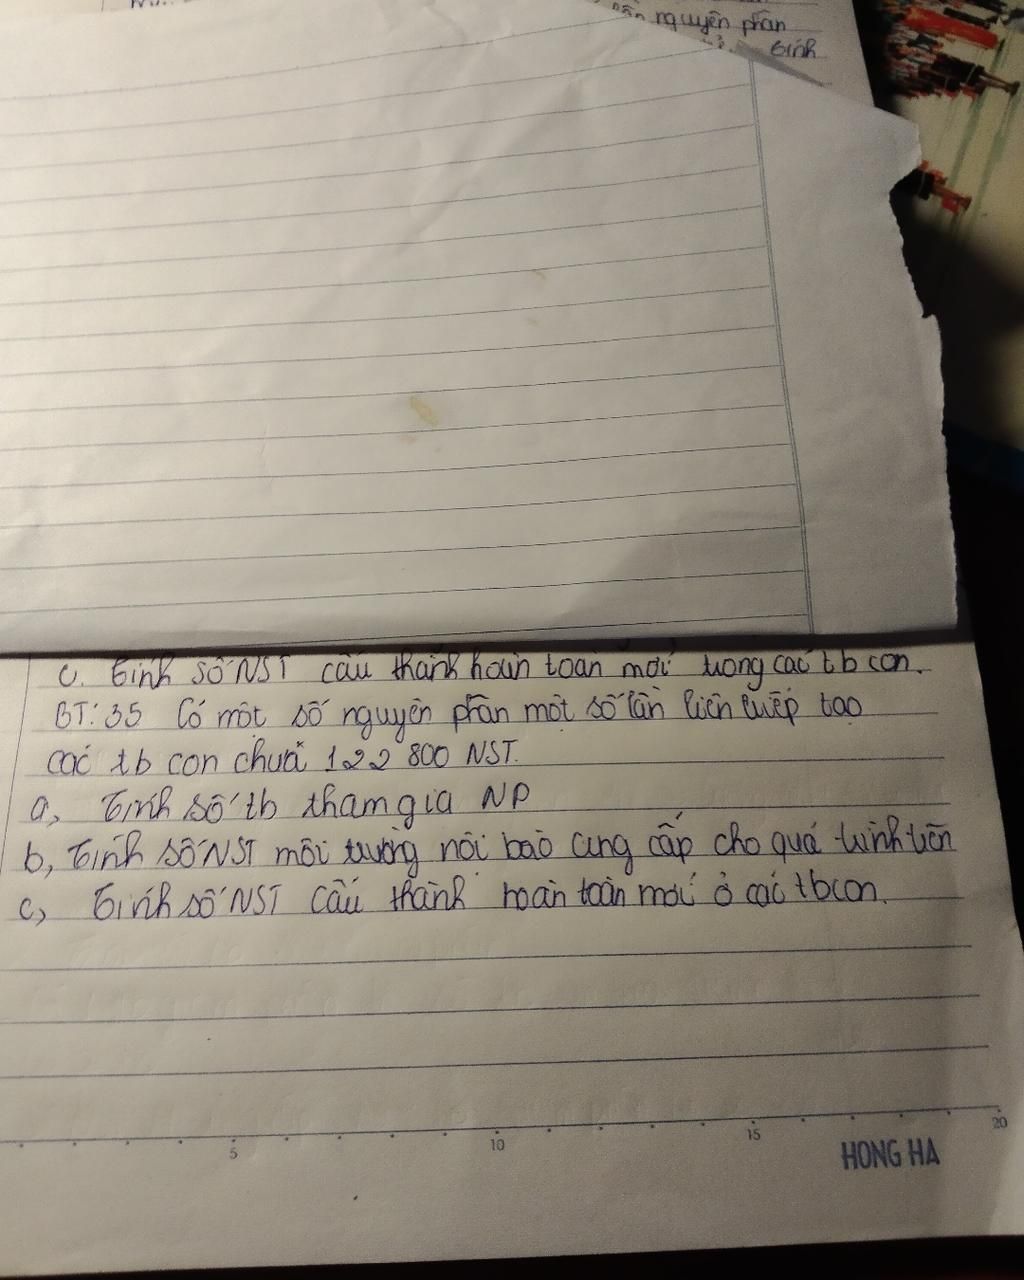 nguyên phân
tính
c. Tính số NST cấu thành hoàn toàn mới trong các tb con.
BT: 35 Có một số nguyên phân một số lần liên tiếp tạo
các tb con chứa 122 800 NST.
a, Tính số tb tham gia NP
b, Tính số NST môi trường nội bào cung cấp cho quá trình trên
c, Tính số NST cấu thành hoàn toàn mới ở các tb con.
5 10 15 20
HONG HA